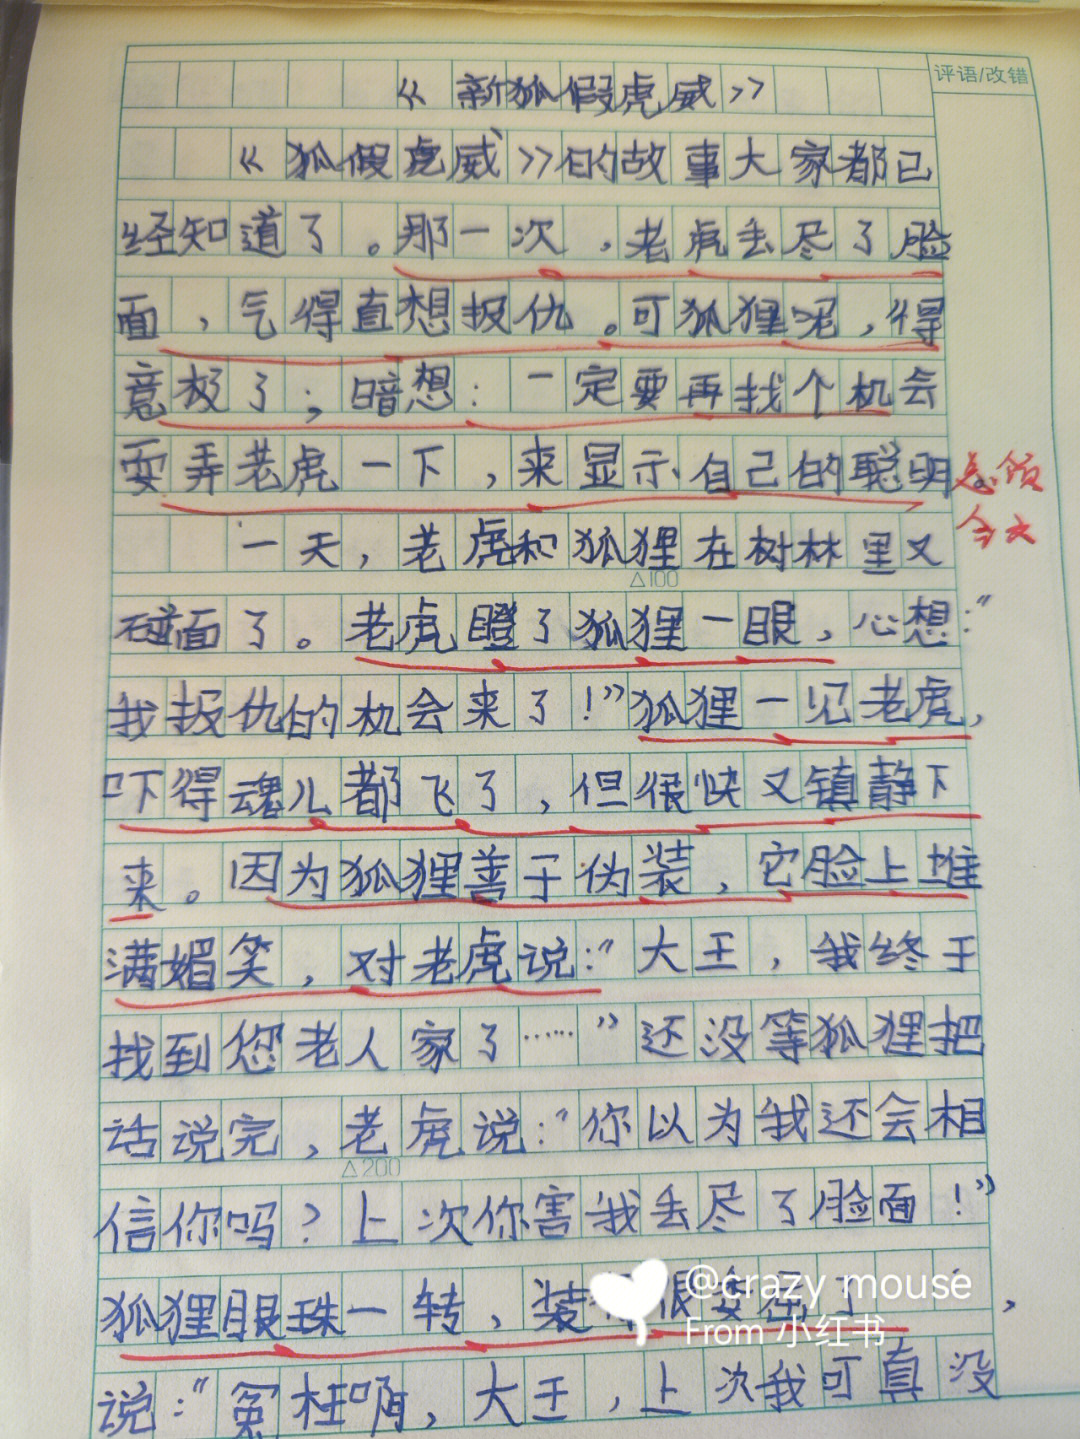 《新狐假虎威》
评语/改错
《狐假虎威》的故事大家都已
经知道了。那一次，老虎丢尽了脸
面，气得直想报仇。可狐狸呢，得
意极了；暗想：一定要再找个机会
耍弄老虎一下，来显示自己的聪明
总领
全文
一天，老虎和狐狸在树林里又
△100
碰面了。老虎瞪了狐狸一眼，心想：“
我报仇的机会来了！”狐狸一见老虎，
吓得魂儿都飞了，但很快又镇静下
来。因为狐狸善于伪装，它脸上堆
满媚笑，对老虎说：“大王，我终于
找到您老人家了……”还没等狐狸把
话说完，老虎说：“你以为我还会相
△200
信你吗？上次你害我丢尽了脸面！”
狐狸眼珠一转，装很委屈了，
@crazy mouse
From 小红书
说：“冤枉啊，大王，上次我可真没